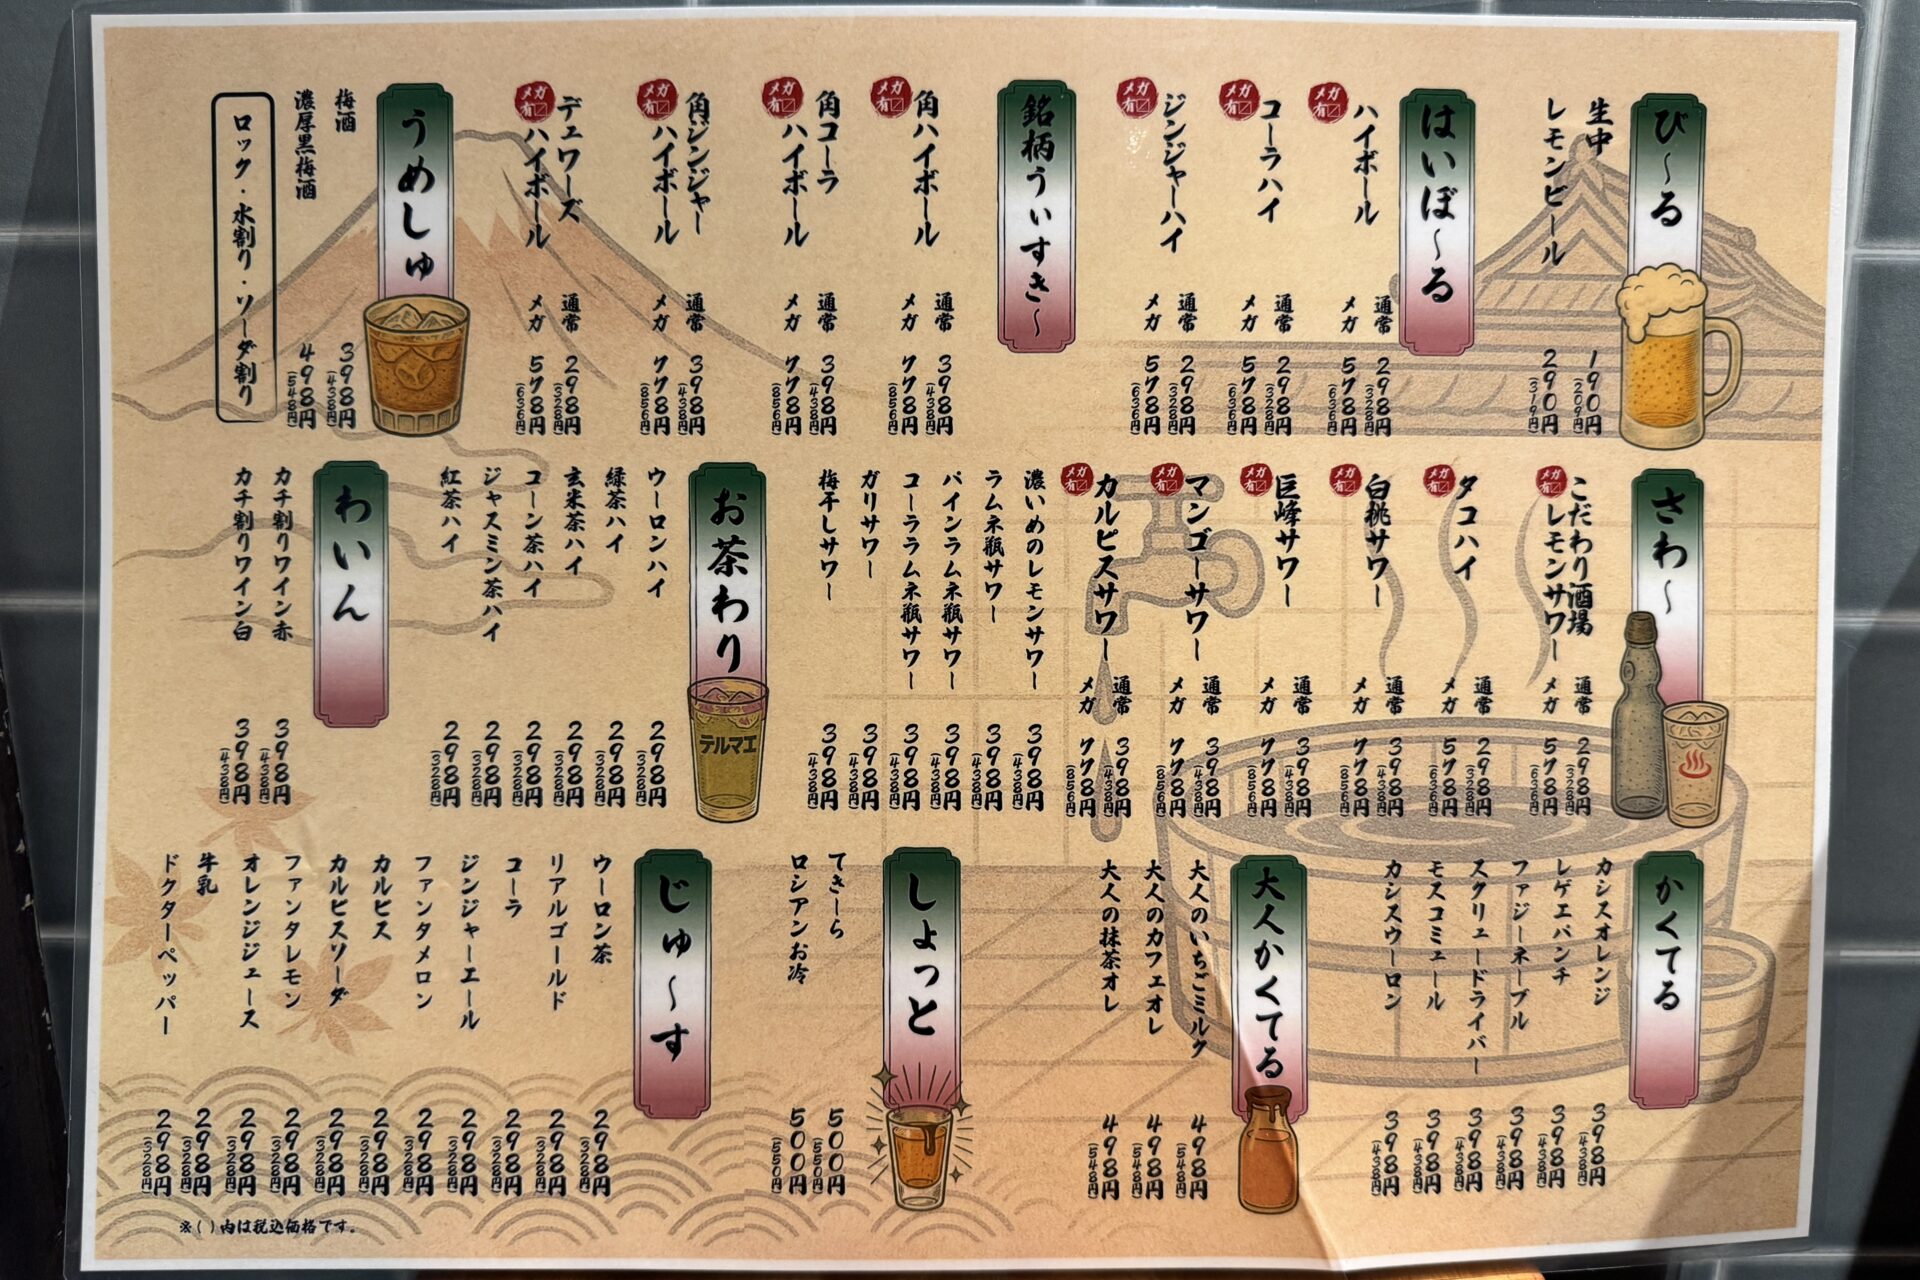 び～る
生中
190円
(209円)
レモンビール
290円
(319円)
はいぼ～る
メガ有
ハイボール
通常 298円
(328円)
メガ 578円
(636円)
メガ有
コーラハイ
通常 298円
(328円)
メガ 578円
(636円)
メガ有
ジンジャーハイ
通常 298円
(328円)
メガ 578円
(636円)
銘柄うぃすき～
メガ有
角ハイボール
通常 398円
(438円)
メガ 778円
(856円)
メガ有
角コーラ
ハイボール
通常 398円
(438円)
メガ 778円
(856円)
メガ有
角ジンジャー
ハイボール
通常 398円
(438円)
メガ 778円
(856円)
メガ有
デュワーズ
ハイボール
通常 298円
(328円)
メガ 578円
(636円)
うめしゅ
梅酒
398円
(438円)
濃厚黒梅酒
498円
(548円)
ロック・水割り・ソーダ割り
さわ～
メガ有
こだわり酒場
レモンサワー
通常 298円
(328円)
メガ 578円
(636円)
メガ有
タコハイ
通常 298円
(328円)
メガ 578円
(636円)
メガ有
白桃サワー
通常 398円
(438円)
メガ 778円
(856円)
メガ有
巨峰サワー
通常 398円
(438円)
メガ 778円
(856円)
メガ有
マンゴーサワー
通常 398円
(438円)
メガ 778円
(856円)
メガ有
カルピスサワー
通常 398円
(438円)
メガ 778円
(856円)
濃いめのレモンサワー
398円
(438円)
ラムネ瓶サワー
398円
(438円)
パインラムネ瓶サワー
398円
(438円)
コーララムネ瓶サワー
398円
(438円)
ガリサワー
398円
(438円)
梅干しサワー
398円
(438円)
お茶わり
テルマエ
ウーロンハイ
298円
(328円)
緑茶ハイ
298円
(328円)
玄米茶ハイ
298円
(328円)
コーン茶ハイ
298円
(328円)
ジャスミン茶ハイ
298円
(328円)
紅茶ハイ
298円
(328円)
わいん
カチ割りワイン赤
398円
(438円)
カチ割りワイン白
398円
(438円)
かくてる
カシスオレンジ
398円
(438円)
レゲエパンチ
398円
(438円)
ファジーネーブル
398円
(438円)
スクリュードライバー
398円
(438円)
モスコミュール
398円
(438円)
カシスウーロン
398円
(438円)
大人かくてる
大人のいちごミルク
498円
(548円)
大人のカフェオレ
498円
(548円)
大人の抹茶オレ
498円
(548円)
しょっと
てきーら
500円
(550円)
ロシアンお冷
500円
(550円)
じゅ～す
ウーロン茶
298円
(328円)
リアルゴールド
298円
(328円)
コーラ
298円
(328円)
ジンジャーエール
298円
(328円)
ファンタメロン
298円
(328円)
カルピス
298円
(328円)
カルピスソーダ
298円
(328円)
ファンタレモン
298円
(328円)
オレンジジュース
298円
(328円)
牛乳
298円
(328円)
ドクターペッパー
298円
(328円)
※()内は税込価格です。